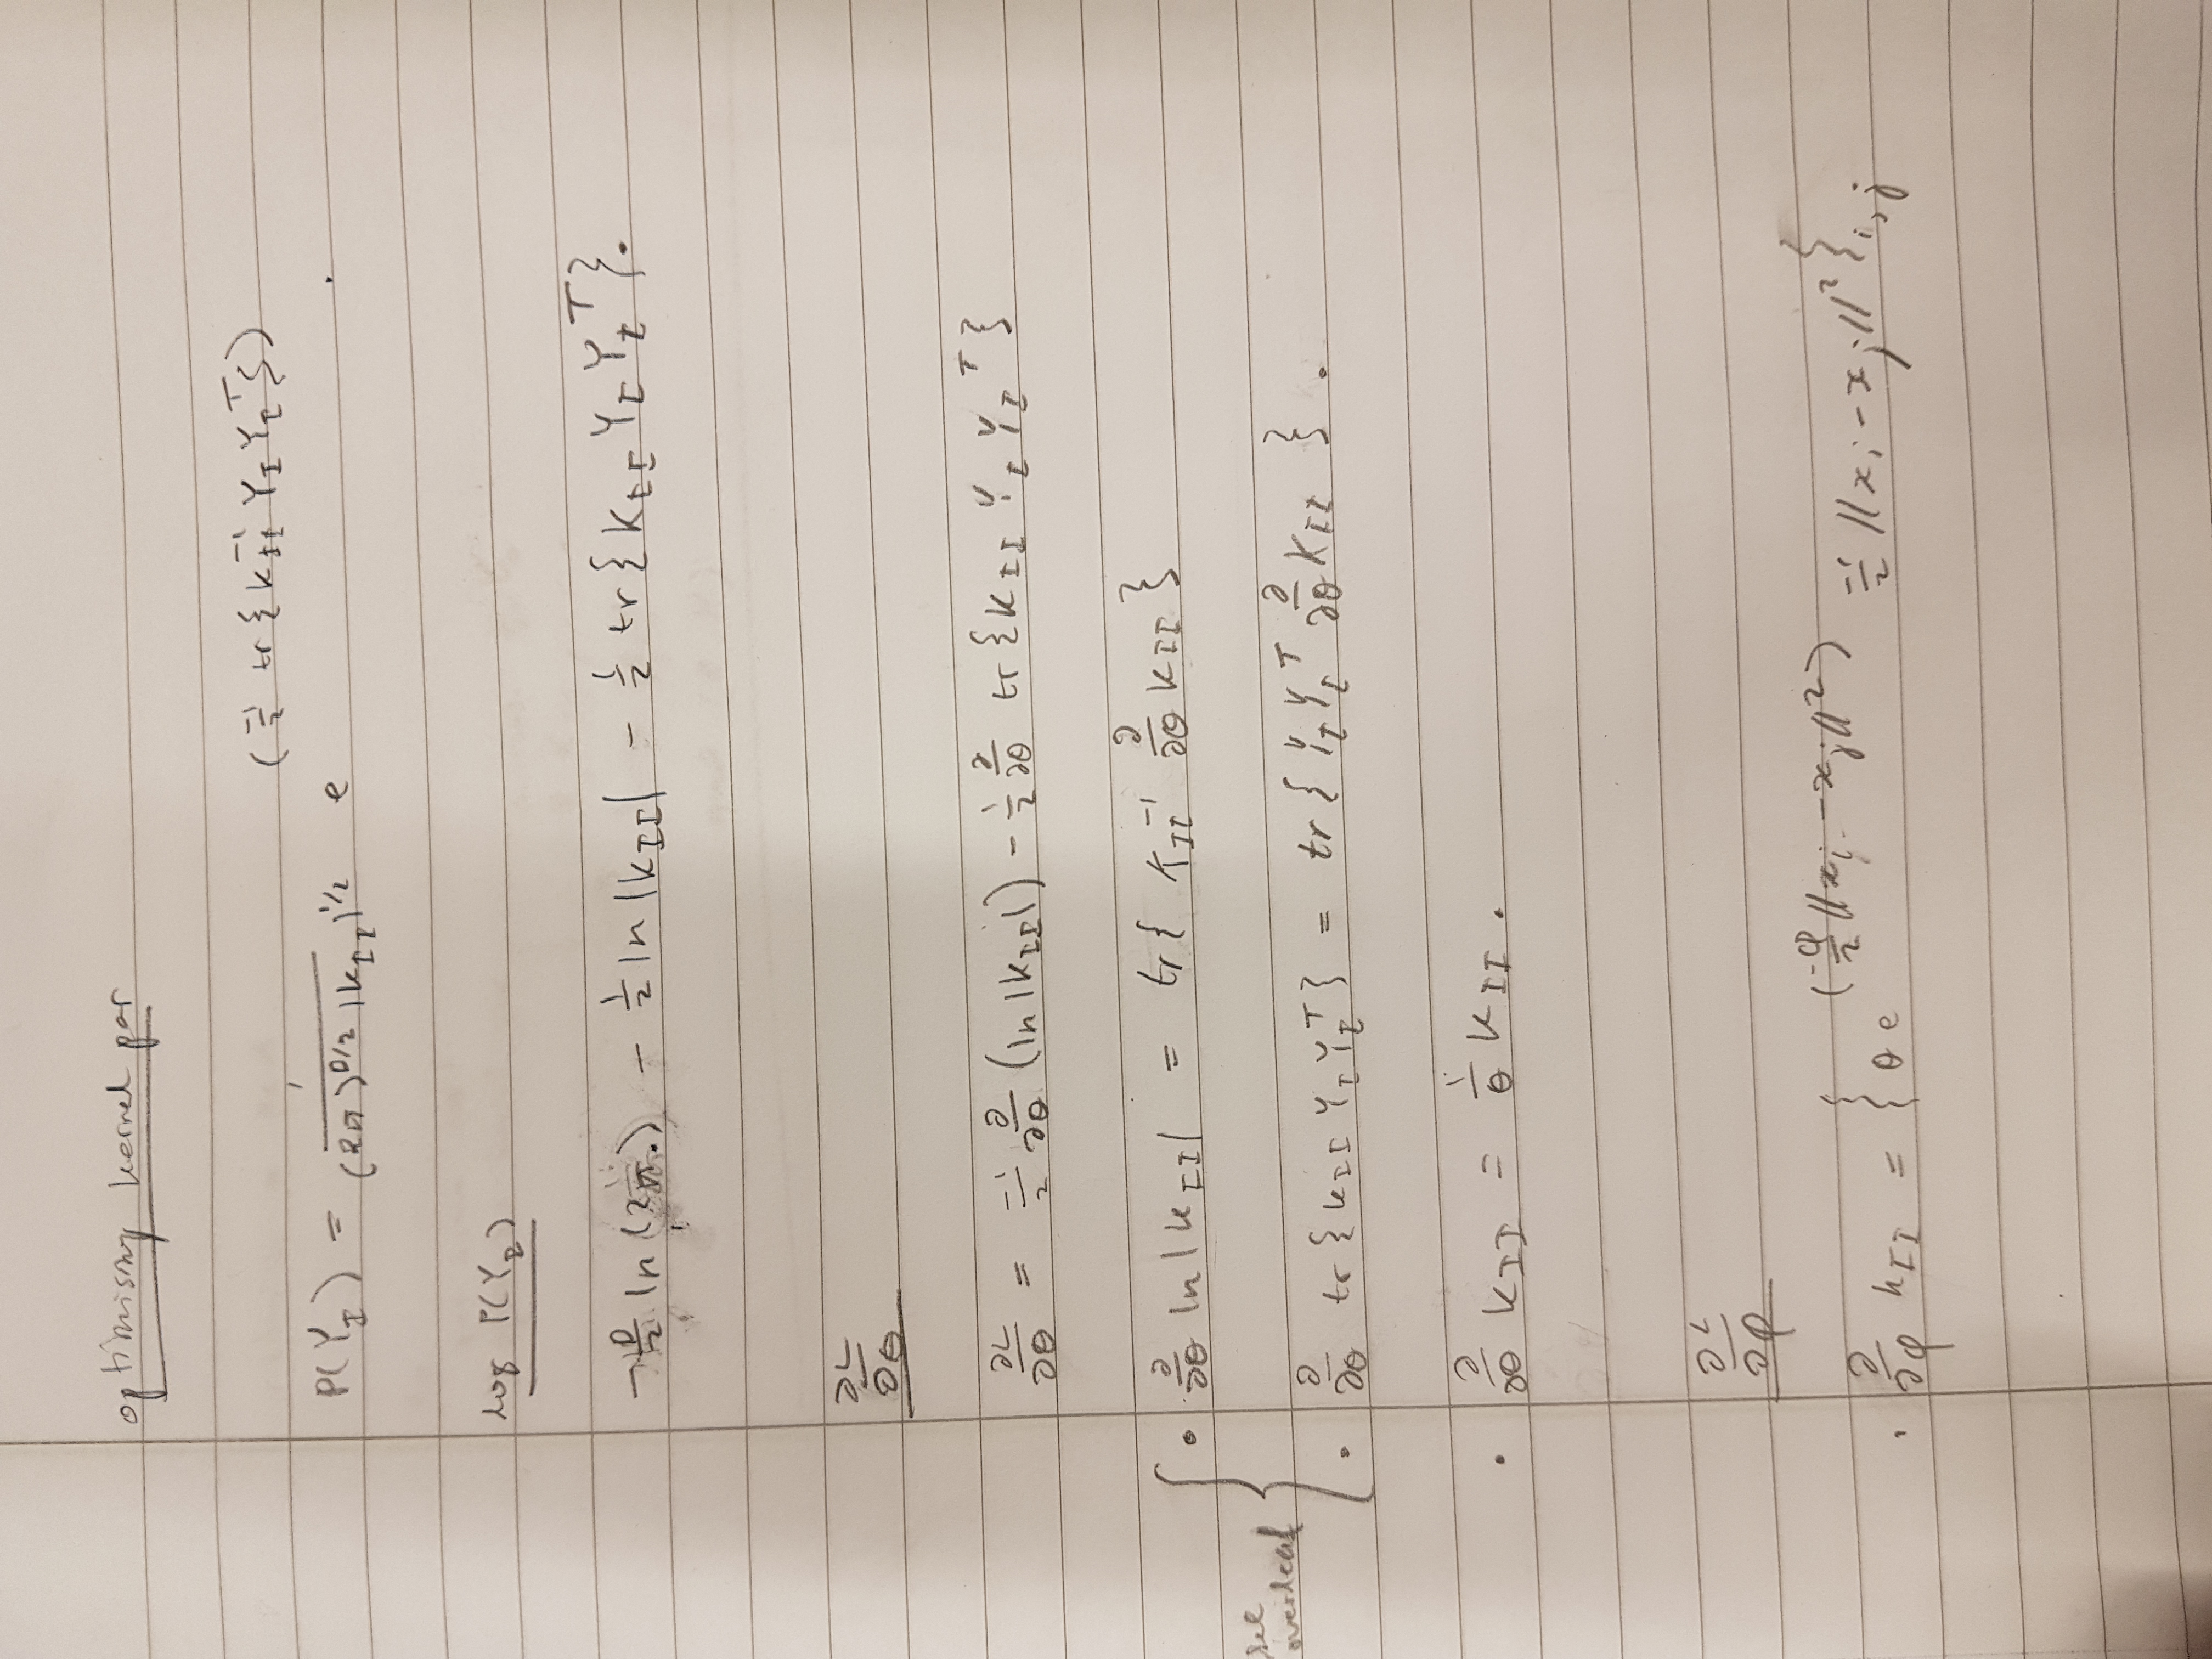 optimising kernel par
P(Y_I) = 1 / ((2π)^{D/2} |K_{II}|^{1/2}) e^{(-1/2 tr{K_{II}^{-1} Y_I Y_I^T})}.
log P(Y_I)
-D/2 ln(2π.) - 1/2 ln|K_{II}| - 1/2 tr{K_{II} Y_I Y_I^T}.
∂L/∂θ
∂L/∂θ = -1/2 ∂/∂θ (ln|K_{II}|) - 1/2 ∂/∂θ tr{K_{II} Y_I Y_I^T}
• ∂/∂θ ln|K_{II}| = tr{ K_{II}^{-1} ∂/∂θ K_{II} }
see
overleaf
• ∂/∂θ tr{K_{II} Y_I Y_I^T} = tr{ Y_I Y_I^T ∂/∂θ K_{II} }.
• ∂/∂θ K_{II} = 1/θ K_{II}.
∂L/∂φ
• ∂/∂φ K_{II} = { θ e^{(-φ/2 ||x_i - x_j||^2)} -1/2 ||x_i - x_j||^2 }_{i,j}